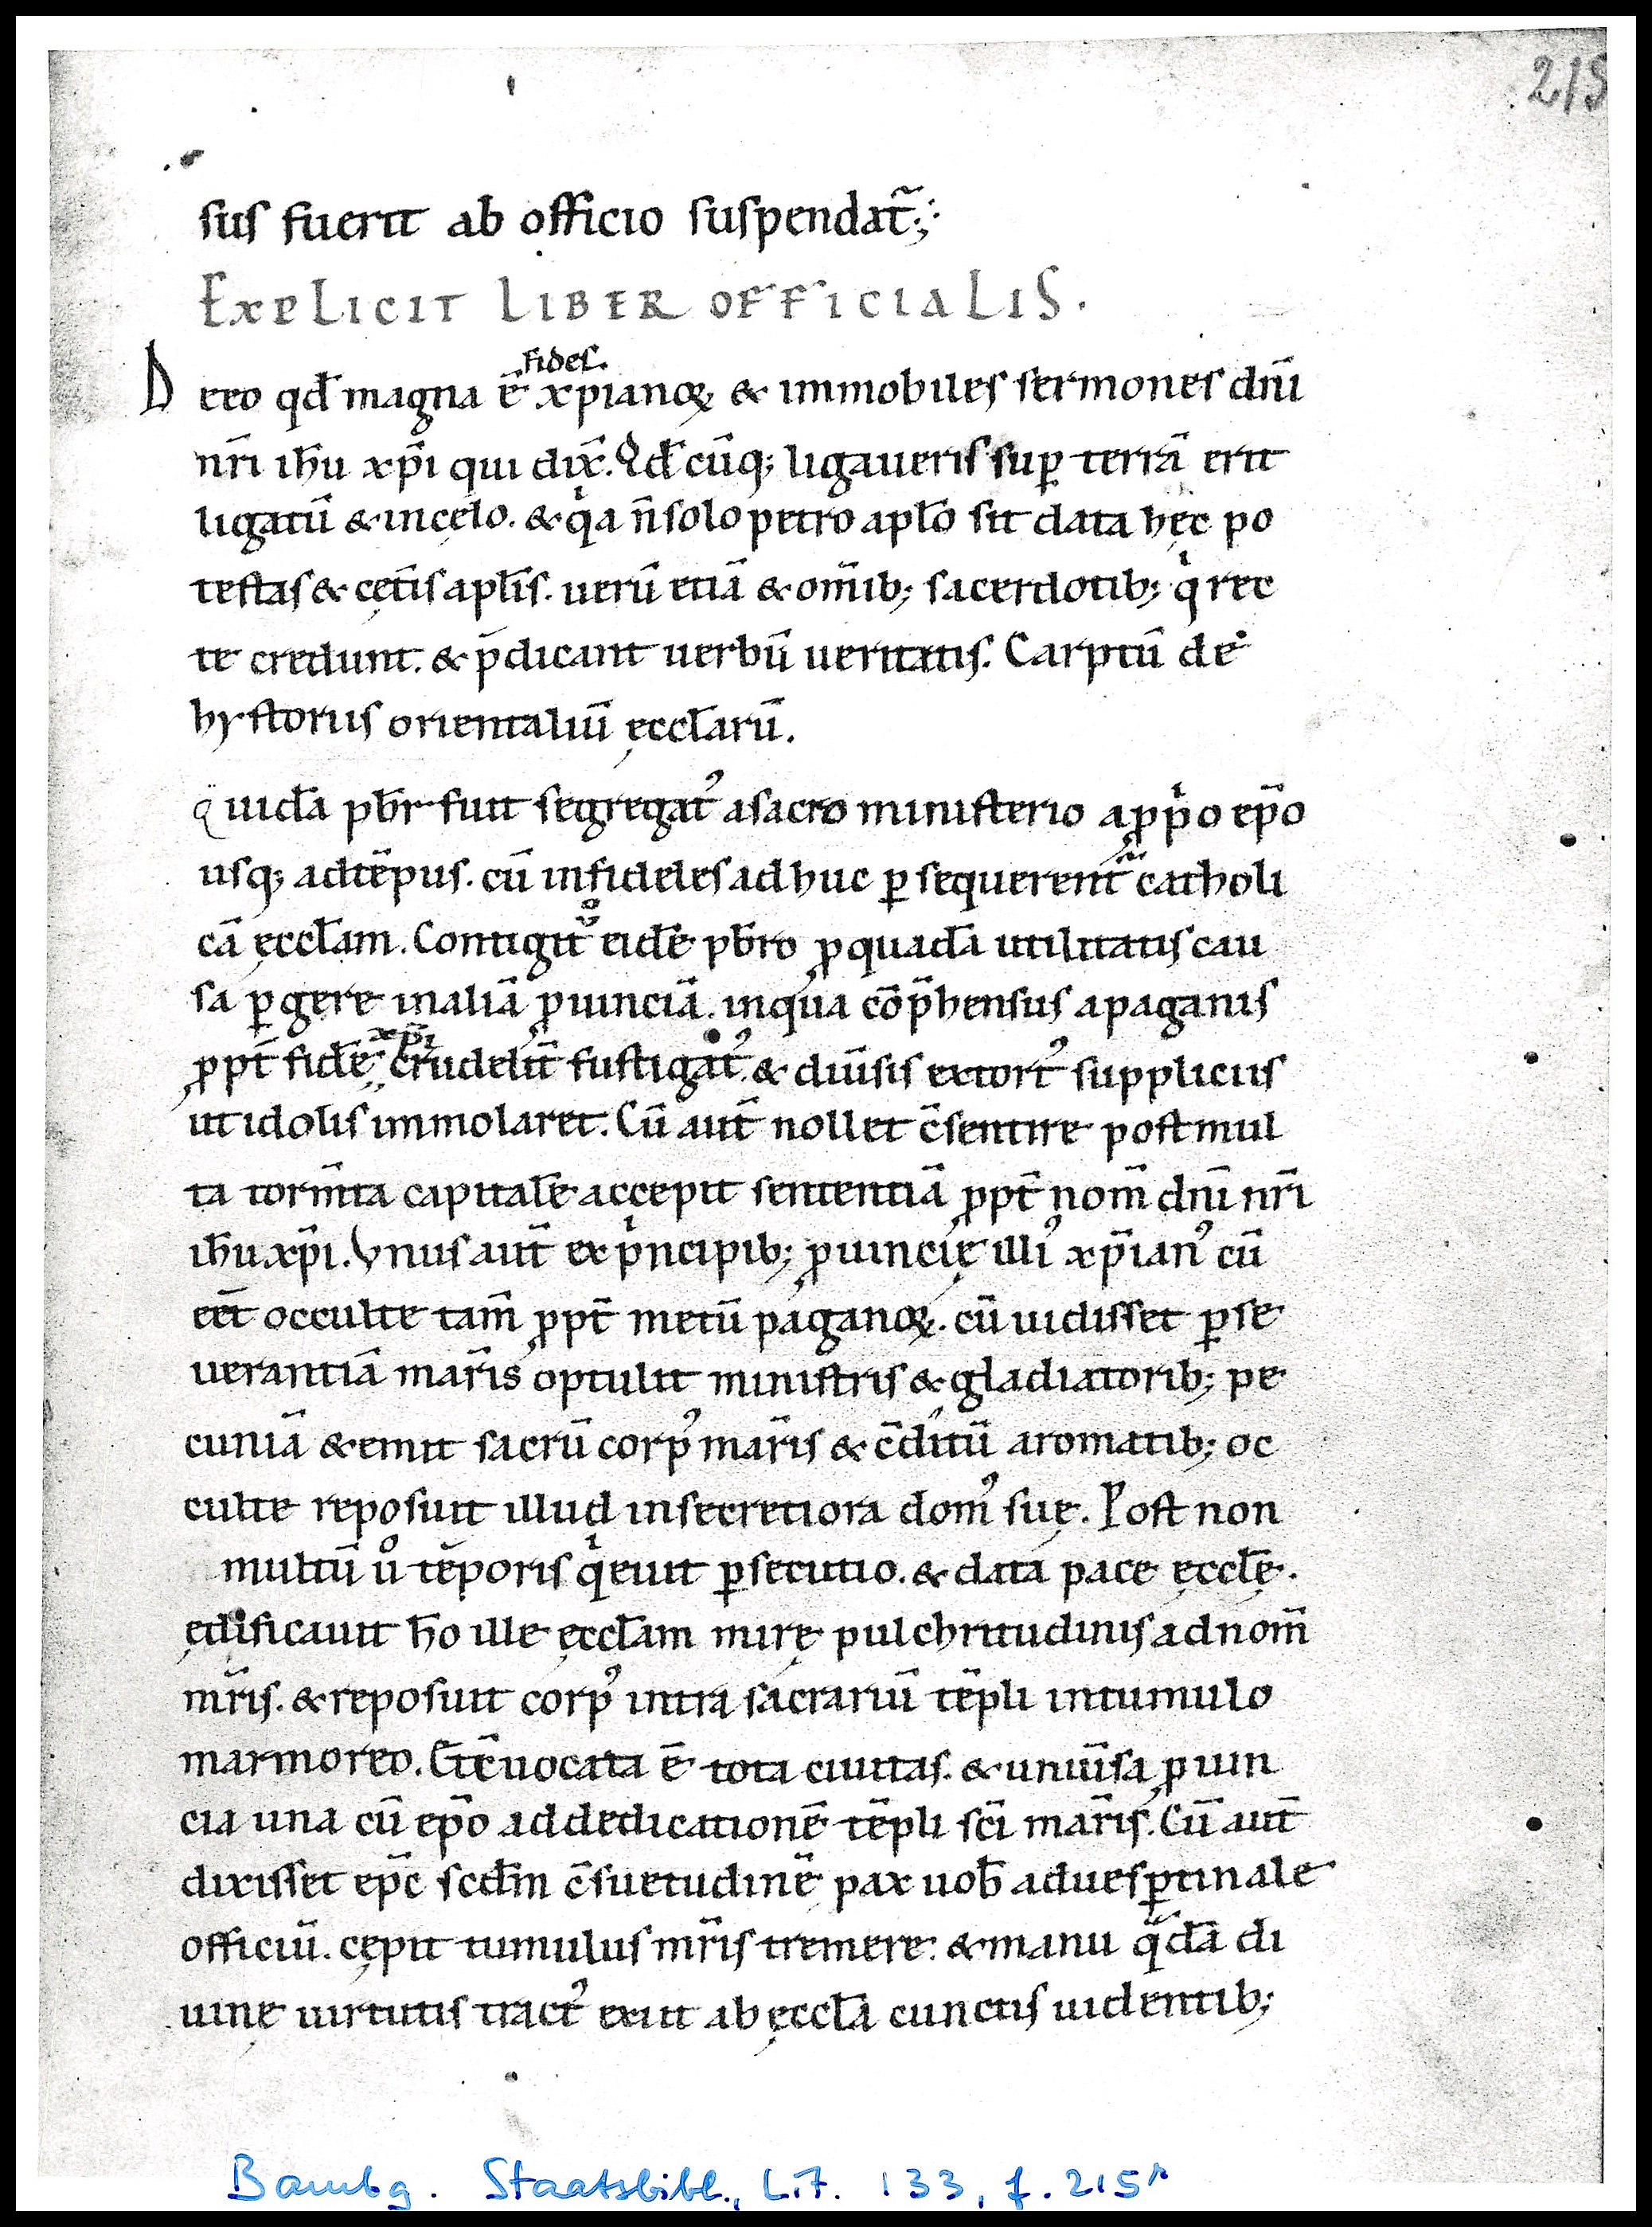 215
sus fuerit ab officio suspendat̃;
EXPLICIT LIBER OFFICIALIS.
fides.
D eeo qđ magna ē xp̃ianoꝝ & immobiles sermones dñi
nr̃i ih̄u xp̃i qui dix̃. Qđ cũq; ligaueris suꝑ terrã erit
ligatũ & in cęlo. & qͥa ñ solo petro apl̃o sit data hęc po
testas & cęt̃is apl̃is. uerũ etiã & om̃ib; sacerdotib; qͥ rec
te credunt. & p̃dicant uerbũ ueritatis. Carptũ de
hystoriis orientaliũ ęccl̃arũ.
Quidã pb̃r fuit segregatꝰ a sacro ministerio a ꝓpͥo ep̃o
usq; ad tẽpus. cũ infideles ad huc ꝑsequerent̃ catholi
cã ęccl̃am. Contigit uͦ eidẽ pb̃ro ꝓ quadã utilitatis cau
sa ꝑgere in aliã ꝓuinciã. in qua cõp̃hensus a paganis
xp̃i
ꝓpt̃ fidẽ crudelit̃ fustigatꝰ. & diũsis extortꝰ suppliciis
ut idolis immolaret. Cũ aut̃ nollet c̃sentire post mul
ta torm̃ta capitalẽ accepit sententiã ꝓpt̃ nom̃ dñi nr̃i
ih̄u xp̃i. Vnus aut̃ ex pͥncipib; ꝓuincię illiꝰ xp̃ianꝰ cũ
eet̃ occulte tam̃ ꝓpt̃ metũ paganoꝝ. cũ uidisset ꝑse
uerantiã mar̃is optulit ministris & gladiatorib; pe
cuniã & emit sacrũ corpꝰ mar̃is & c̃ditũ aromatib; oc
culte reposuit illud in secretiora domꝰ suę. Post non
multũ uͦ tẽporis qͥeuit ꝑsecutio. & data pace ęccl̃ę.
ędificauit h̃o ille ęccl̃am mirę pulchritudinis ad nom̃
mr̃is. & reposuit corpꝰ intra sacrariũ tẽpli in tumulo
marmoreo. Et c̃uocata ē tota ciuitas. & uniũsa ꝓuin
cia una cũ ep̃o ad dedicationẽ tẽpli sc̃i mar̃is. Cũ aut̃
dixisset ep̃c scdm̃ c̃suetudinẽ pax uob̃ ad uesꝑtinale
officiũ. cępit tumulus mr̃is tremere. & manu qᵃdã di
uinę uirtutis tractꝰ exiit ab ęccl̃a cunctis uidentib;
Bambg. Staatsbibl., Lit. 133, f. 215r